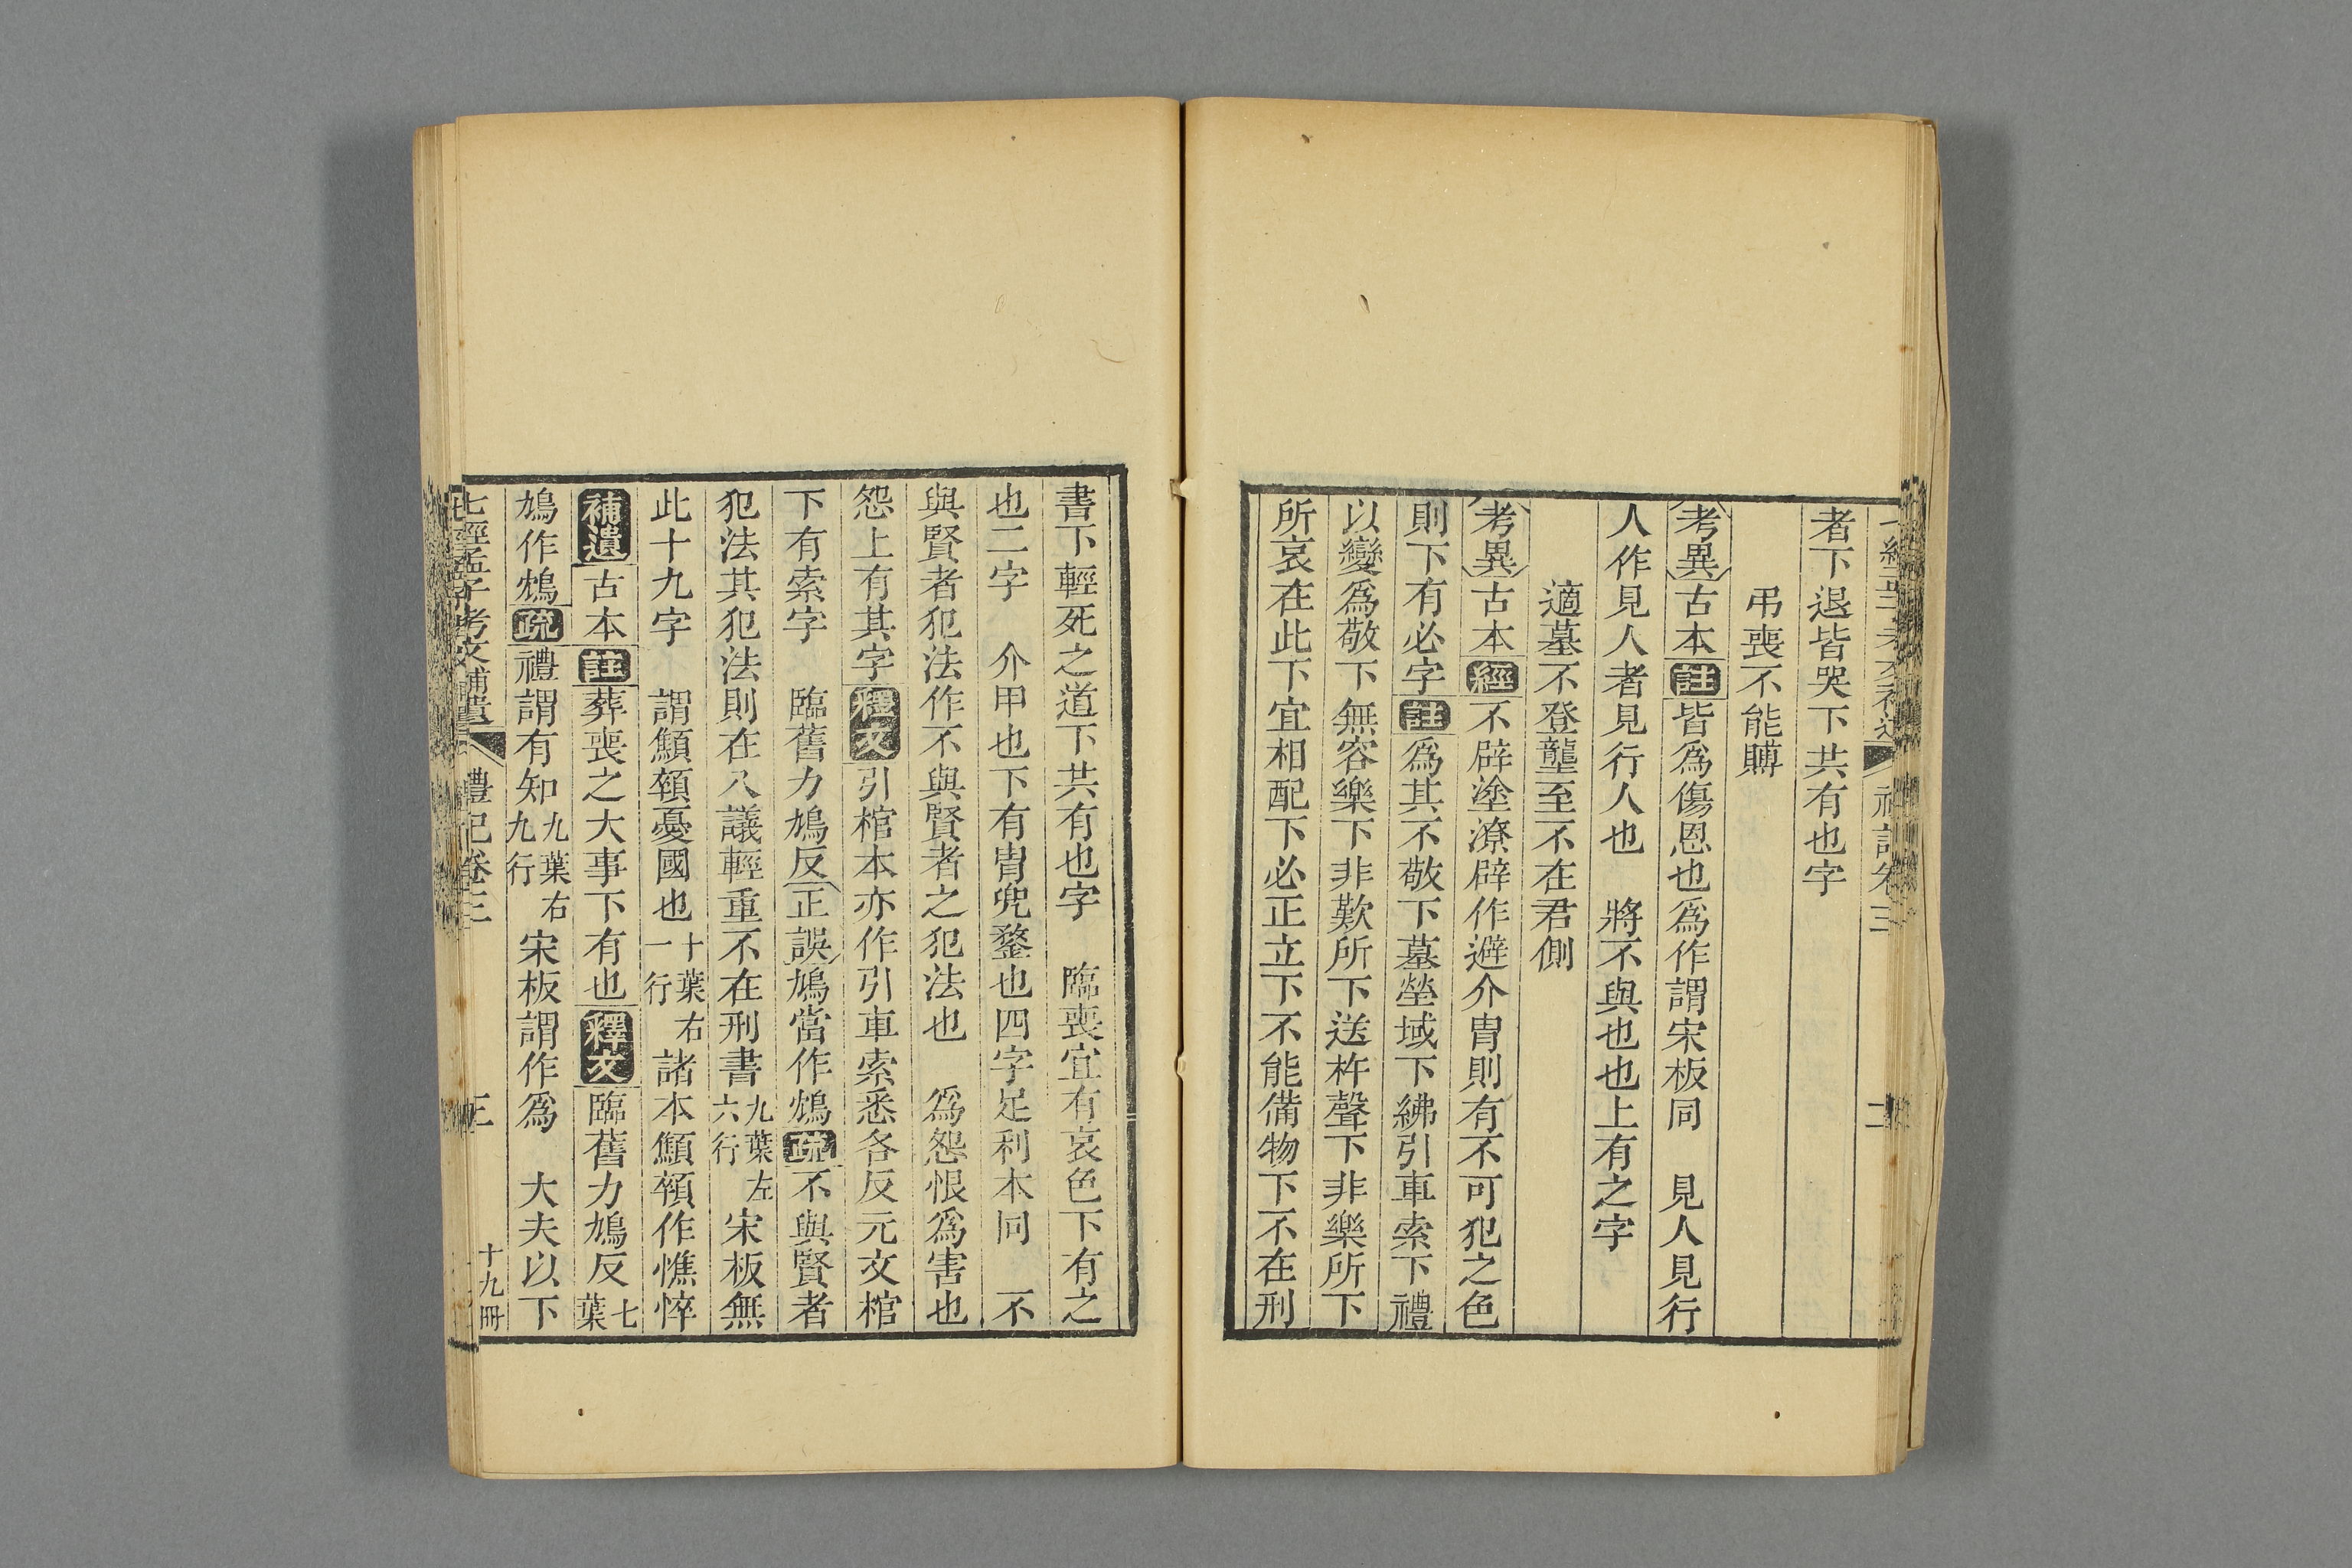 者下退皆哭下共有也字
弔喪不能賻
考異古本註皆爲傷恩也爲作謂宋板同　見人見行
人作見人者見行人也　將不與也也上有之字
適墓不登壟至不在君側
考異古本經不辟塗潦辟作避介胄則有不可犯之色
則下有必字註爲其不敬下墓塋域下紼引車索下禮
以變爲敬下無容樂下非歎所下送杵聲下非樂所下
所哀在此下宜相配下必正立下不能備物下不在刑
書下輕死之道下共有也字　臨喪宜有哀色下有之
也二字　介甲也下有胄兜鍪也四字足利本同　不
與賢者犯法作不與賢者之犯法也　爲怨恨爲害也
怨上有其字釋文引棺本亦作引車索悉各反元文棺
下有索字　臨舊力鳩反正誤鳩當作鴆疏不與賢者
犯法其犯法則在八議輕重不在刑書九葉左六行宋板無
此十九字　謂顦顇憂國也十葉右一行諸本顦顇作憔悴
補遺古本註葬喪之大事下有也釋文臨舊力鳩反七葉
鳩作鴆疏禮謂有知九葉右九行宋板謂作爲　大夫以下
七經孟子考文補遺　禮記卷三　三　十九冊